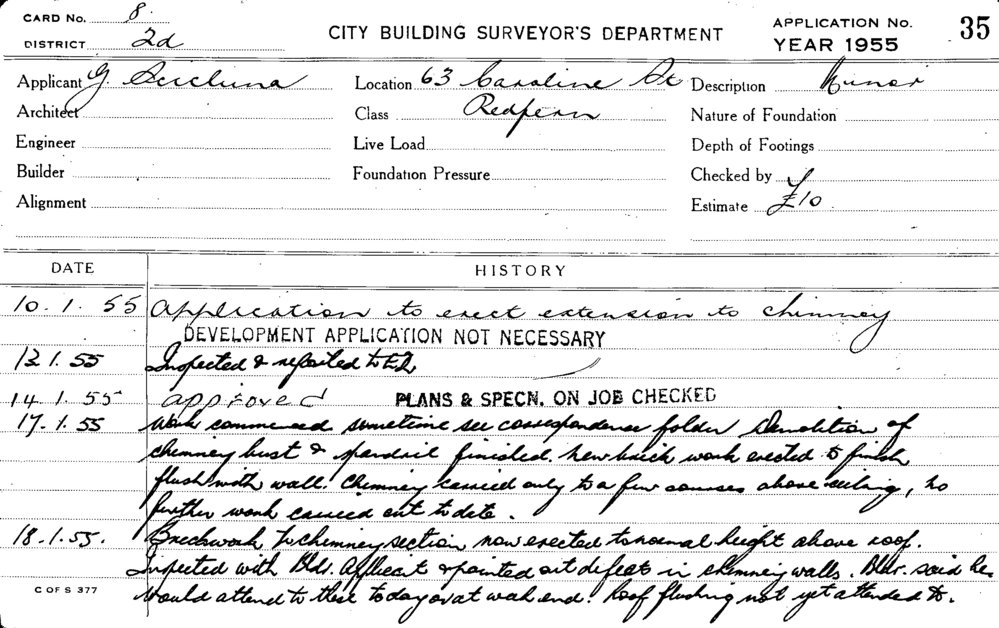 CARD No. 8.
DISTRICT 2d
CITY BUILDING SURVEYOR'S DEPARTMENT
APPLICATION No. 35
YEAR 1955
Applicant G. Scicluna Location 63 Caroline St Description Minor
Architect Class Redfern Nature of Foundation
Engineer Live Load Depth of Footings
Builder Foundation Pressure Checked by
Alignment Estimate £10
DATE HISTORY
10.1.55 Application to erect extension to chimney
DEVELOPMENT APPLICATION NOT NECESSARY
12 1.55 Inspected & reported to
14.1.55 approved PLANS & SPECN. ON JOB CHECKED
17.1.55 Work commenced sometime see correspondence folder Demolition of
chimney bust & spandril finished. New brick work erected to finish
flush with wall. Chimney carried only to a few courses above ceiling, no
further work carried out to date.
18.1.55. Brickwork to chimney section now erected to normal height above roof.
Inspected with Bld. Applicant & pointed out defects in chimney walls. Bldr. said he
would attend to these today or at wek end. Roof flushing not yet attended to.
C OF S 377